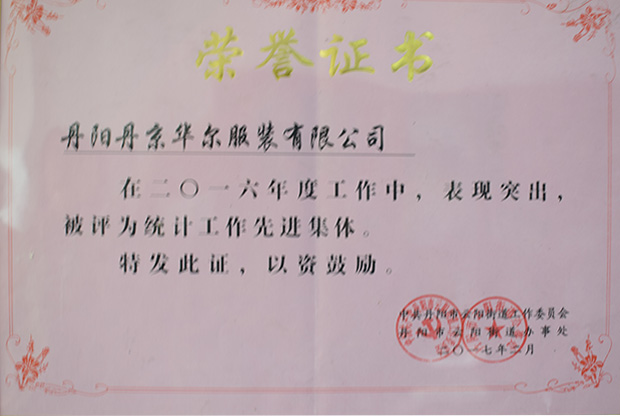 荣誉证书
丹阳丹京华尔服装有限公司
在二〇一六年度工作中，表现突出，
被评为统计工作先进集体。
特发此证，以资鼓励。
中共丹阳市云阳街道工作委员会
丹阳市云阳街道办事处
二〇一七年二月